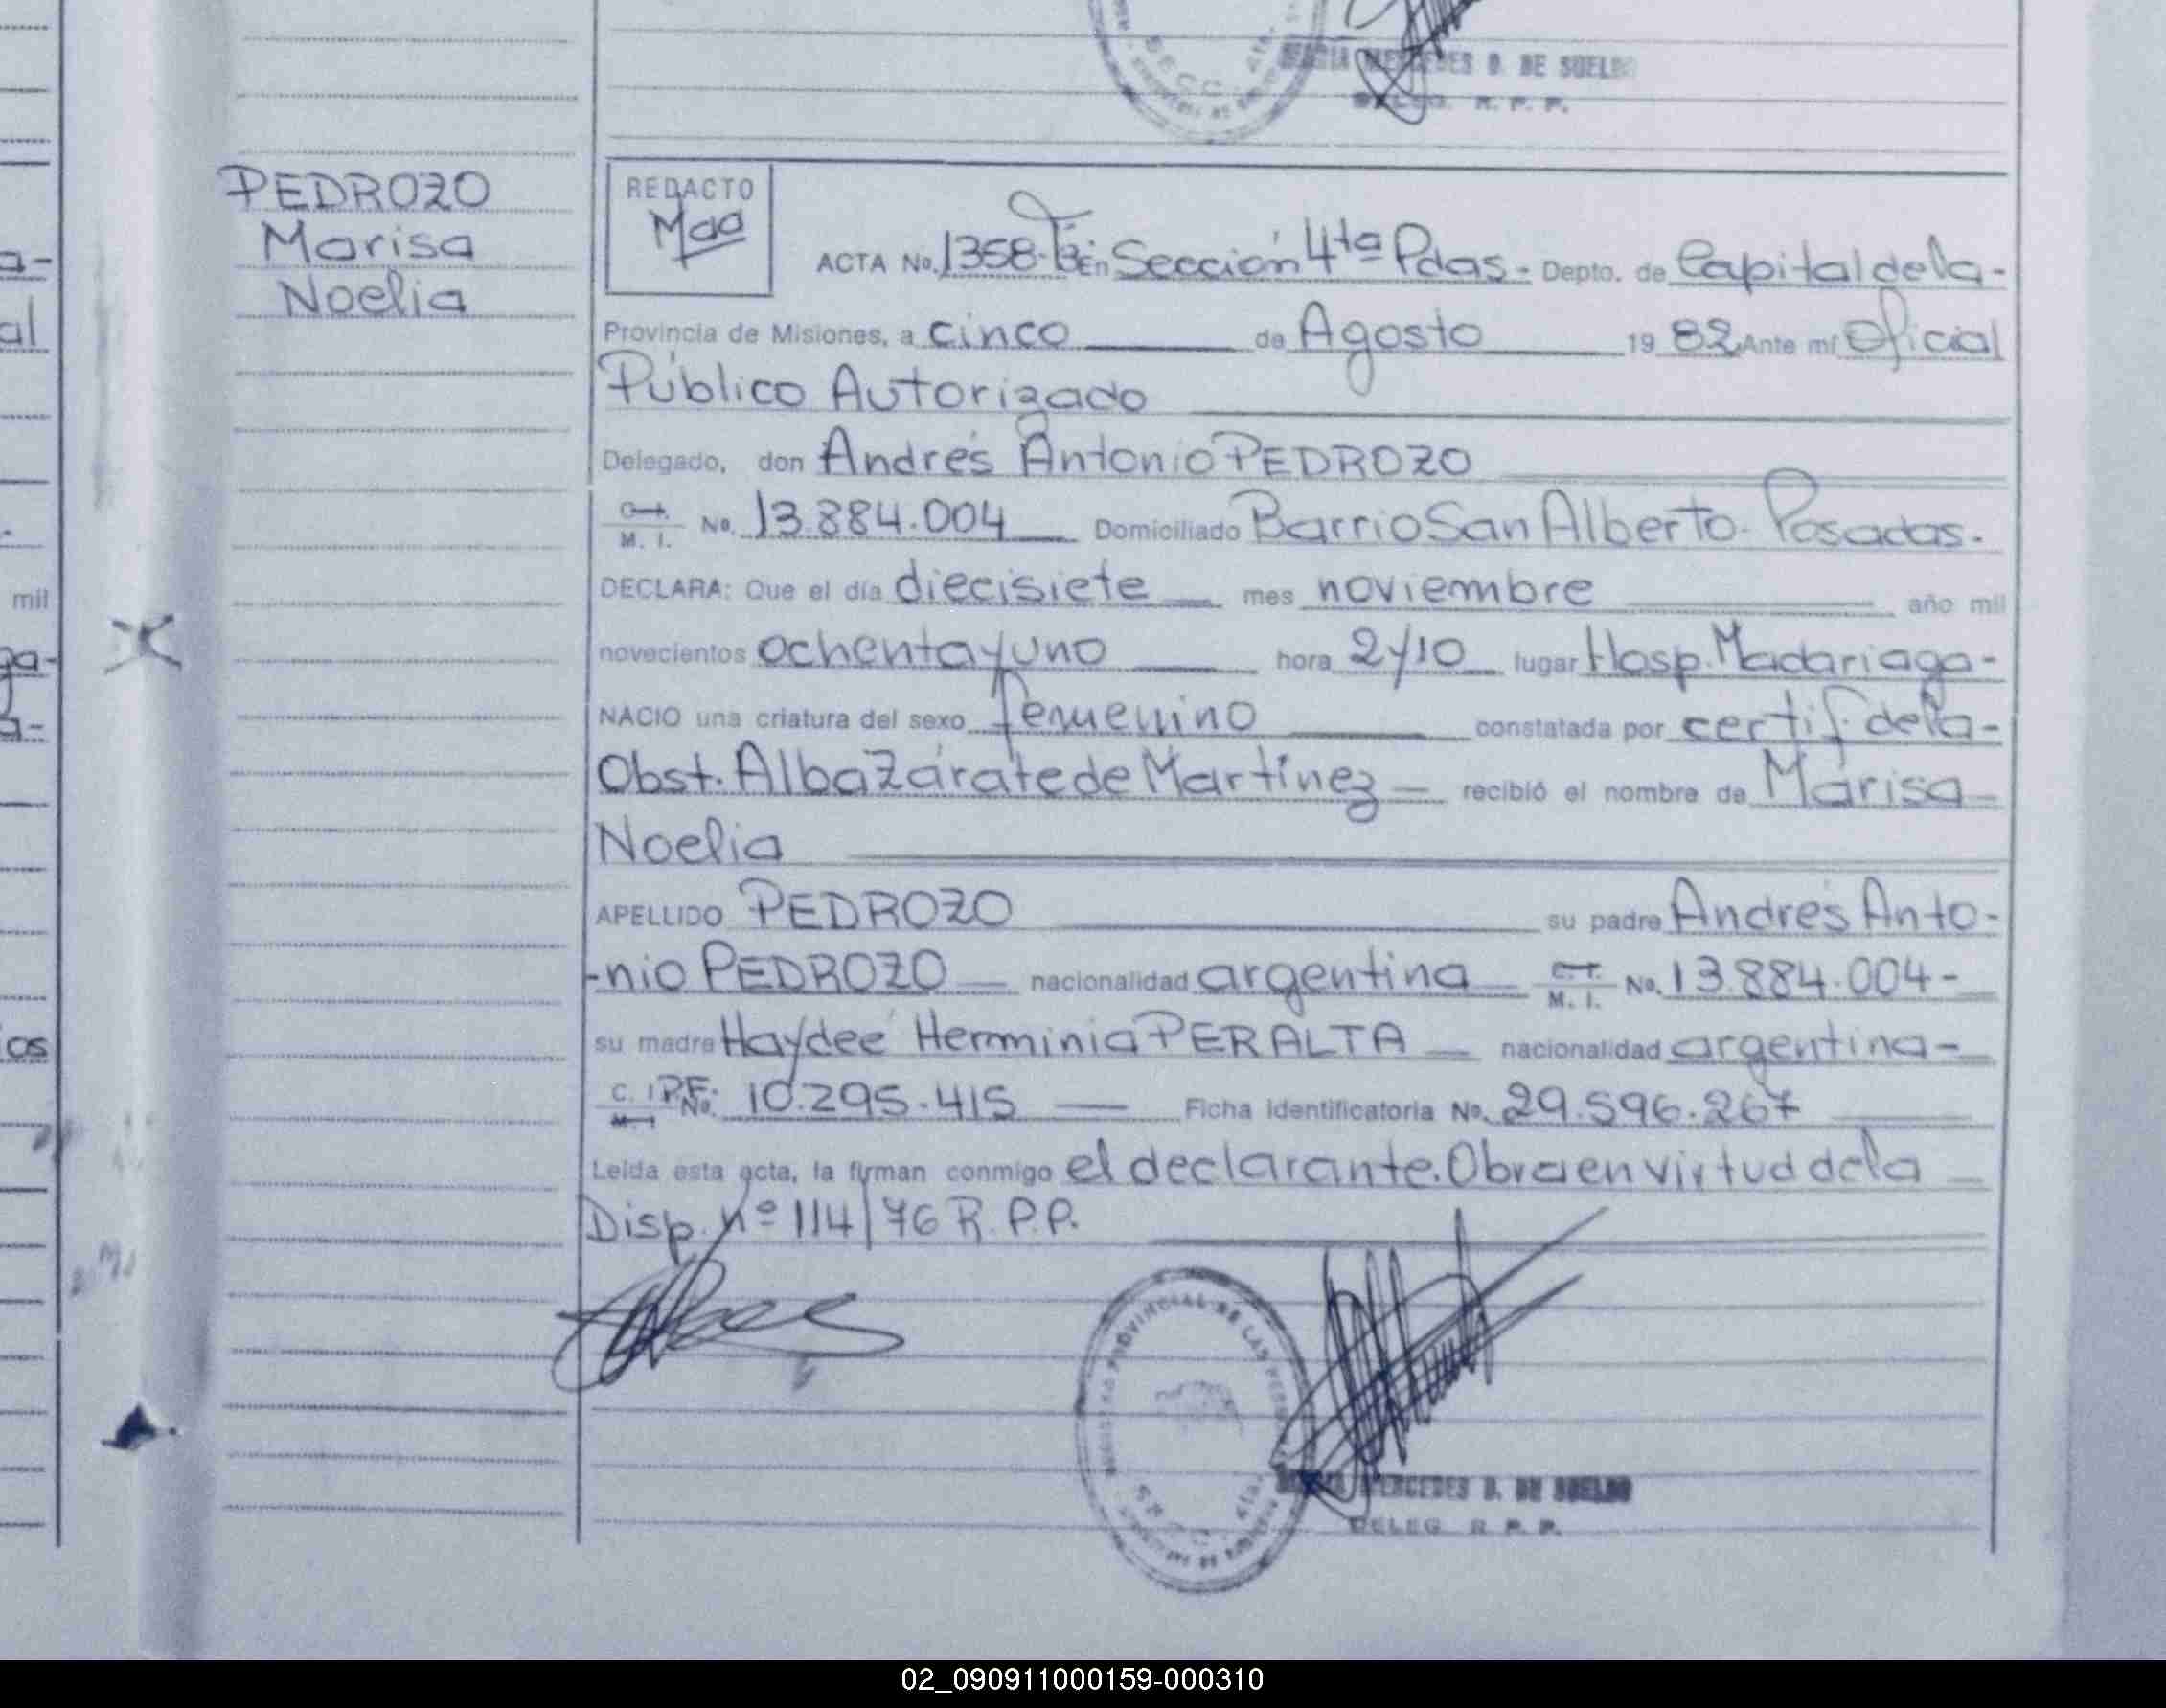 MERCEDES D. DE SUELDO
DELEG. R. P. P.
PEDROZO
Marisa
Noelia
REDACTO
ACTA No. 1358- En Sección 4ta Pdas.- Depto. de Capital de la-
Provincia de Misiones, a cinco de Agosto 19 82 Ante mí Oficial
Público Autorizado
Delegado, don Andrés Antonio PEDROZO
M. I. No. 13.884.004 Domiciliado Barrio San Alberto- Posadas.
DECLARA: Que el día diecisiete mes noviembre año mil
novecientos ochenta y uno hora 2y10 lugar Hosp. Madariaga-
NACIO una criatura del sexo femenino constatada por certif. de la-
Obst. Alba Zárate de Martínez recibió el nombre de Marisa
Noelia
APELLIDO PEDROZO su padre Andrés Anto-
-nio PEDROZO nacionalidad argentina M. I. No. 13.884.004-
su madre Haydeé Herminia PERALTA nacionalidad argentina-
C. I. P.F. No. 10.295.415 Ficha identificatoria No. 29.596.267
Leída esta acta, la firman conmigo el declarante. Obra en virtud de la
Disp. nº 114/76 R.P.P.
MERCEDES D. DE SUELDO
DELEG R. P. P.
02_090911000159-000310